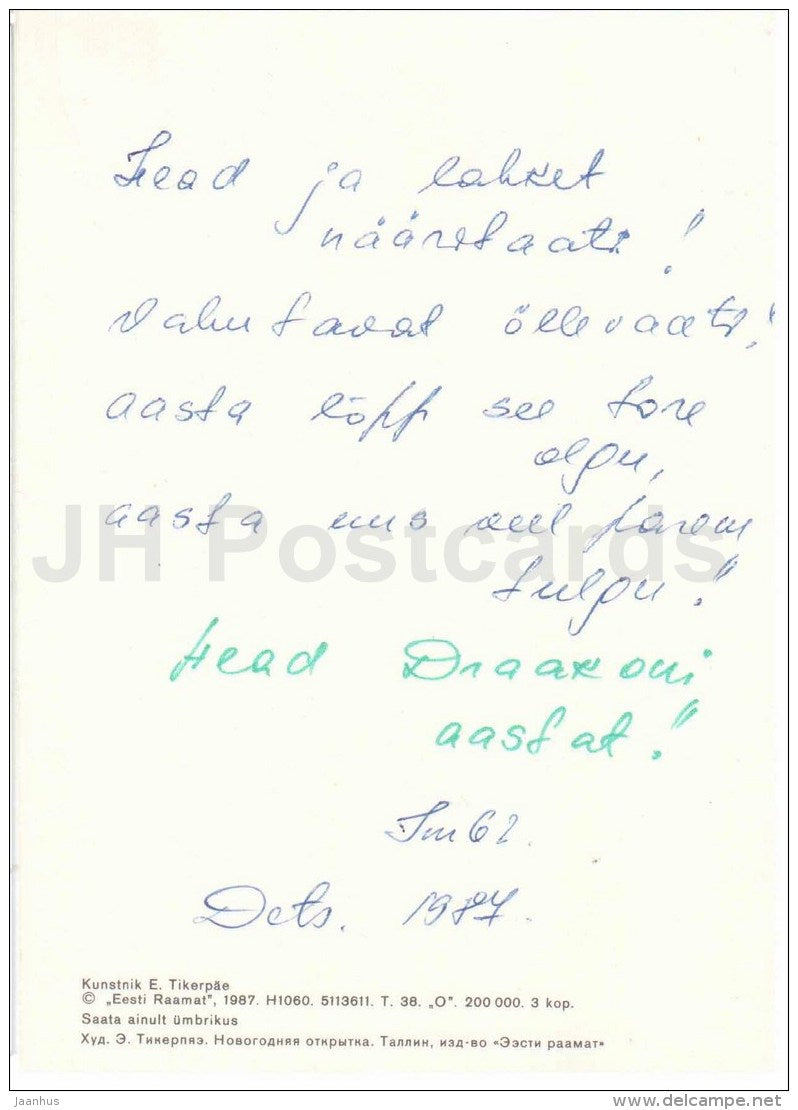 Head ja lahket
nääritaati!
Vahutavat õllevaati!
aasta lõpp see tore
olgu,
aasta uus veel parem
tulgu!
JH Postcards
Head Draakoni
aastat!
Dets. 1987.
Kunstnik E. Tikerpäe
© „Eesti Raamat", 1987. H1060. 5113611. T. 38. „O". 200 000. 3 kop.
Saata ainult ümbrikus
Худ. Э. Тикерпяэ. Новогодняя открытка. Таллин, изд-во «Ээсти раамат»
Jaanhus
delcampe.net